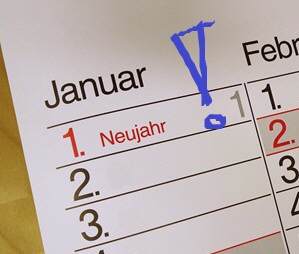 Januar
1. Neujahr 1
2.
3.
Febr
1.
2.
3
4
!